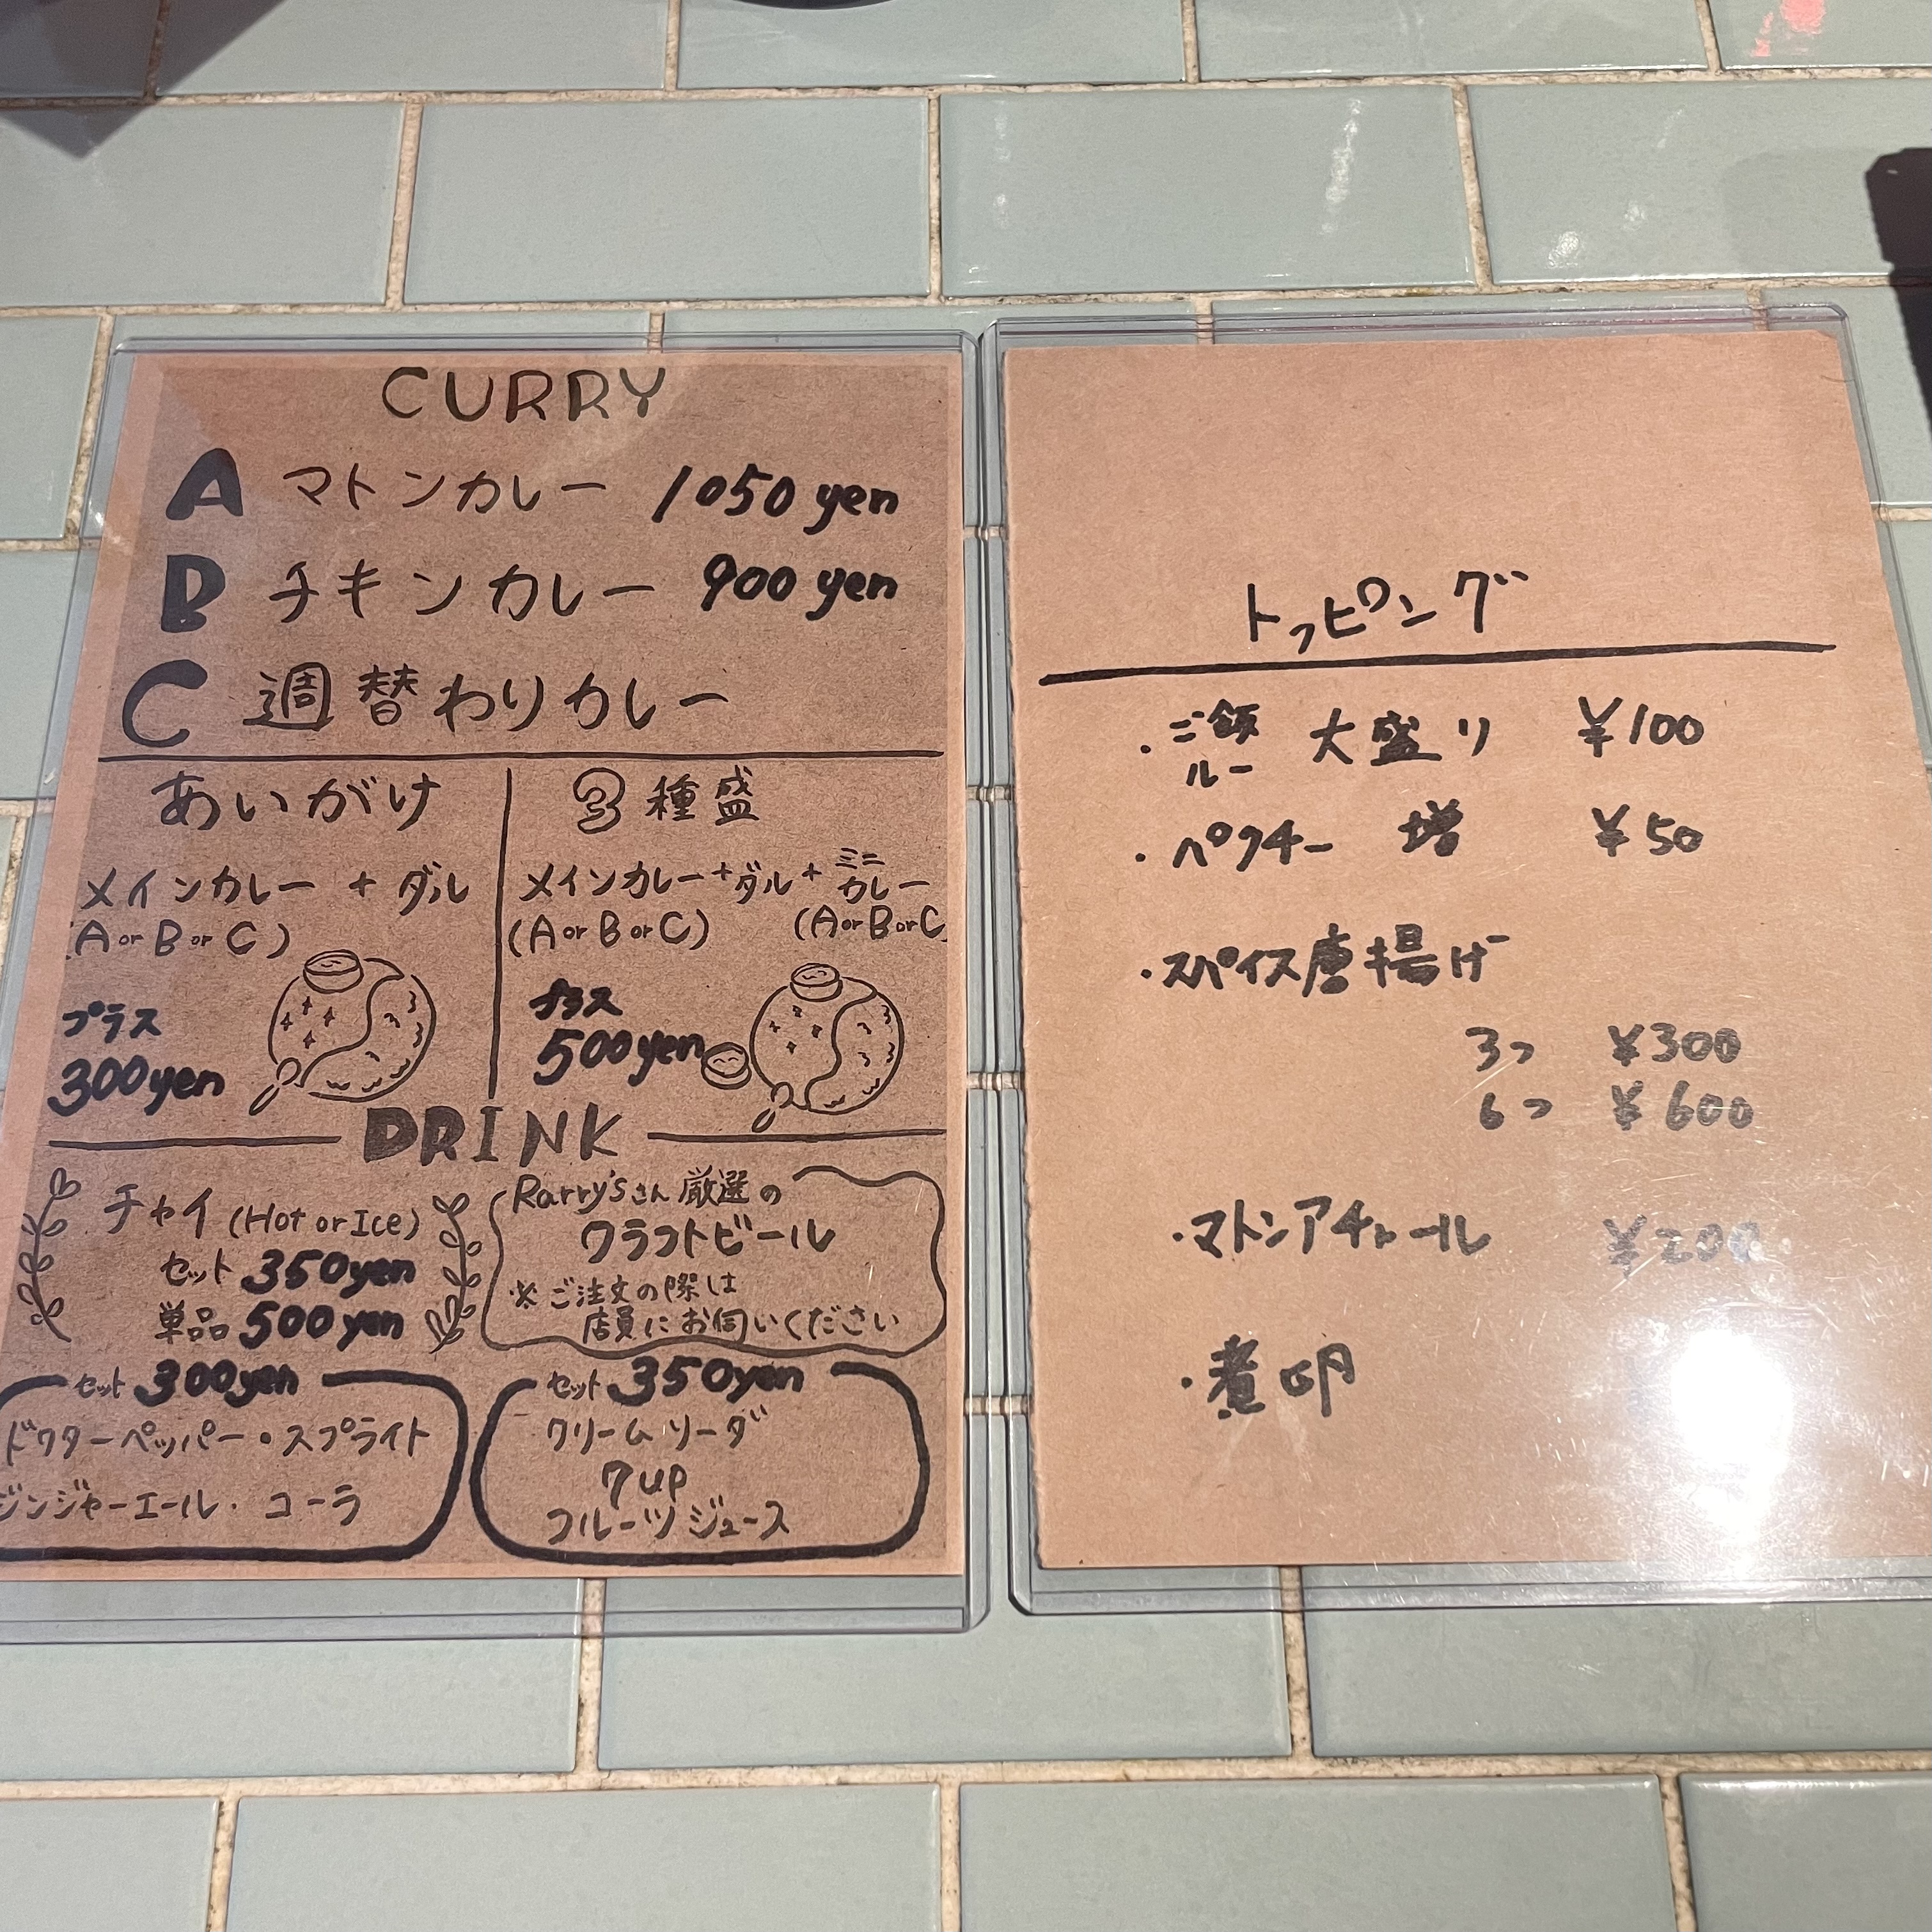 CURRY
A マトンカレー 1050 yen
B チキンカレー 900 yen
C 週替わりカレー
あいがけ
メインカレー + ダル
(A or B or C)
プラス
300yen
③種盛
メインカレー+ダル+ミニカレー
(A or B or C) (A or B or C
プラス
500yen
DRINK
チャイ (Hot or Ice)
セット 350yen
単品 500yen
Rarry'sさん厳選の
クラフトビール
※ご注文の際は
店員にお伺いください
セット 300yen
ドクターペッパー・スプライト
ジンジャーエール・コーラ
セット 350yen
クリームソーダ
7up
フルーツジュース
トッピング
・ご飯 ルー 大盛り ¥100
・パクチー 増 ¥50
・スパイス唐揚げ
3つ ¥300
6つ ¥600
・マトンアチャール ¥200
・煮卵